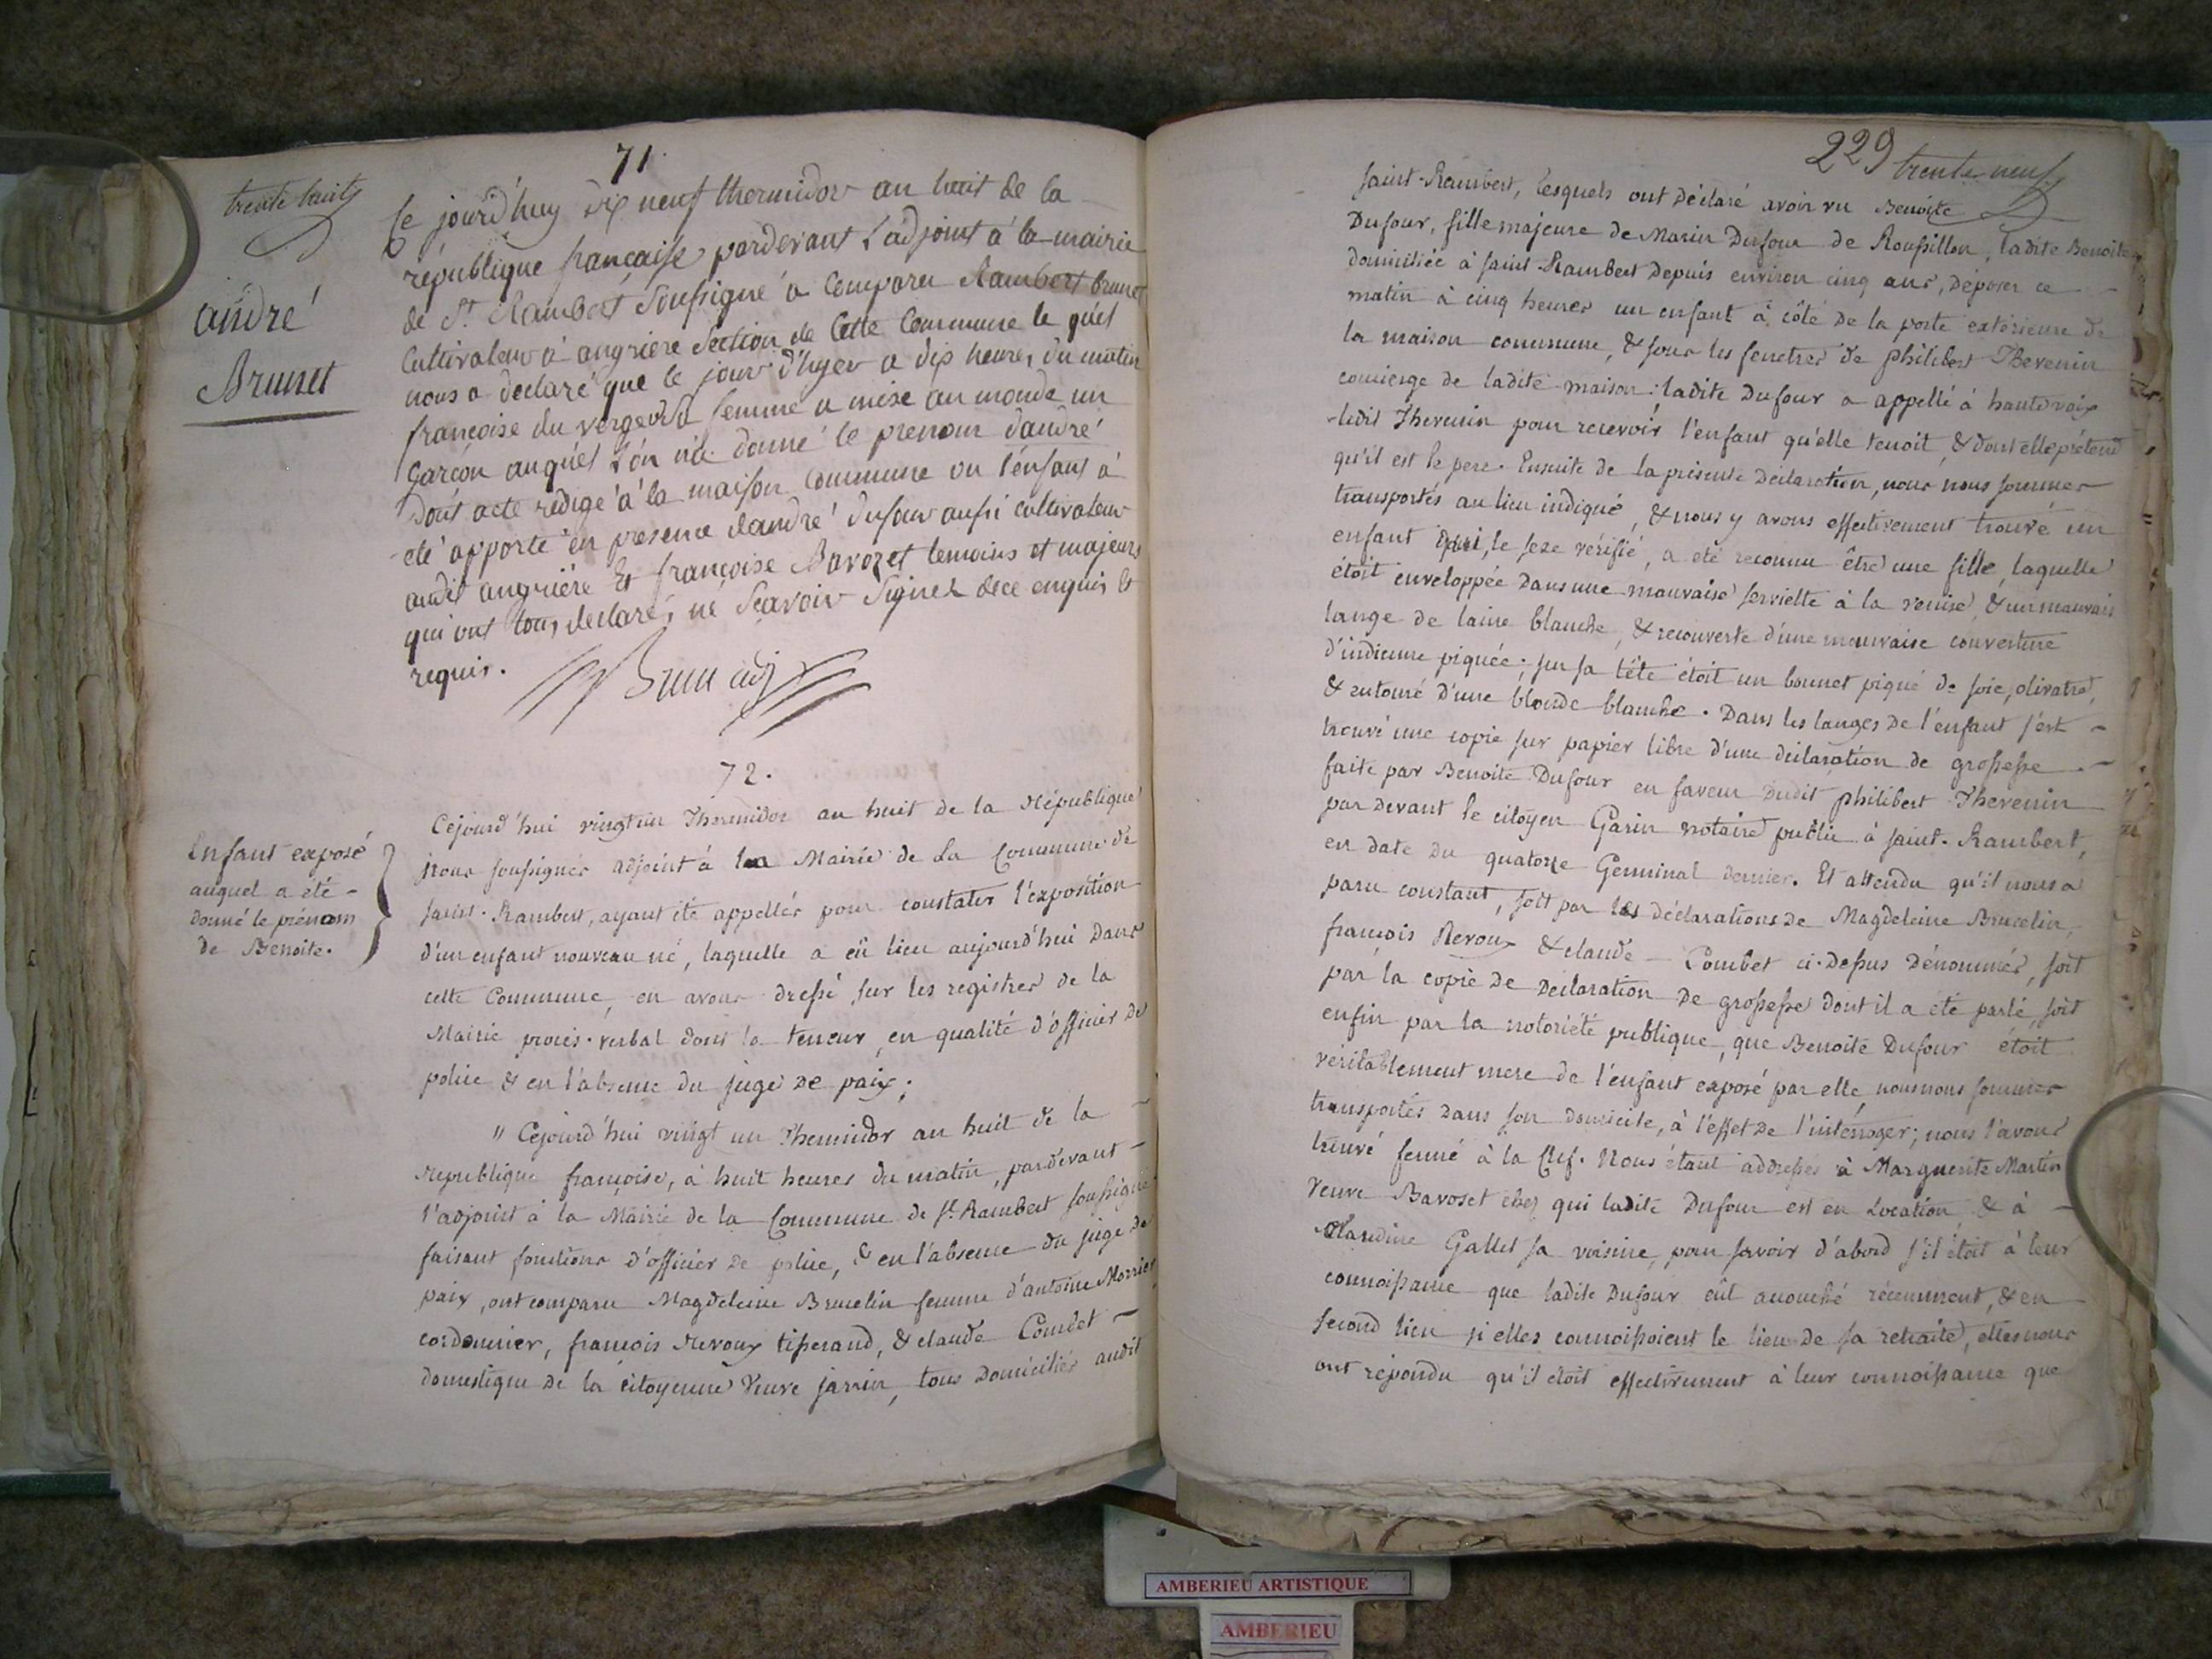 trente huit
andré
Brunet
71.
Ce jourd'huy dix neuf thermidor an huit de la
république française pardevant L'adjoint à la mairie
de St. Rambert Soussigné a Comparu Rambert brunet
Cultivateur à angriere Section de Cette Commune le quel
nous a declaré que le jour d'hyer a dix heures du matin
françoise du vergey Sa femme a mise au monde un
Garçon auquel L'on n'a donné le prenom d'andré
Dont acte rédigé à la maison Commune ou l'énfant à
eté apporté en presence dandré dufour aussi cultivateur
audit angriére Et françoise Bavozet temoins et majeurs
qui ont tous declarés ne Scavoir Signer de ce enquis et
requis.
Brun adj
72.
Enfant exposé
auquel a été -
donné le prénom
de Benoite.
Cejourd'hui vingtun Thermidor an huit de la République
Nous soussignés adjoint à la Mairie de La Commune de
saint-Rambert, ayant été appellés pour constater l'exposition
d'un enfant nouveau né, laquelle a eû lieu aujourd'hui dans
cette Commune, en avons dressé sur les registres de la
Mairie procès-verbal dont la teneur, en qualité d'officier de
police & en l'absence du juge de paix;
" Cejourd'hui vingt un Thermidor an huit de la -
république françoise, à huit heures du matin, pardevant -
l'adjoint à la Mairie de la Commune de St. Rambert soussigné
faisant fonctions d'officier de police, & en l'absence du juge de
paix, ont comparu Magdeleine Brucelin femme d'antoine Morrier
cordonnier, françois Revoux tisserand, & claude Combet -
domestique de la citoyenne Veuve jarrin, tous domiciliés audit
229 trente neuf
saint-Rambert, lesquels ont déclaré avoir vu Benoite
Dufour, fille majeure de Marin Dufour de Roussillon, ladite Benoite
domiciliée à saint-Rambert depuis environ cinq ans, déposer ce -
matin à cinq heures un enfant à côté de la porte extérieure de
la maison commune, & sous les fenetres de philibert Thevenin
concierge de ladite maison: ladite Dufour a appellé à haute voix
ledit Thevenin pour recevoir l'enfant qu'elle tenoit, & dont elle prétend
qu'il est le pere. Ensuite de la présente déclaration, nous nous sommes
transportés au lieu indiqué, & nous y avons effectivement trouvé un
enfant qui, le sexe vérifié, a été reconnu être une fille, laquelle
étoit enveloppée dans une mauvaise serviette à la venise, & un mauvais
lange de laine blanche, & recouverte d'une mauvaise couverture
d'indienne piquée; sur sa tête étoit un bonnet piqué de soie, olivatre,
& entouré d'une blonde blanche. Dans les langes de l'enfant s'est -
trouvé une copie sur papier libre d'une déclaration de grossesse -
faite par Benoite Dufour en faveur dudit philibert Thevenin
par devant le citoyen Garin notaire public à saint-Rambert,
en date du quatorze Germinal dernier. Et attendu qu'il nous a
paru constant, soit par les déclarations de Magdeleine Brucelin,
françois Revoux & claude - Combet ci-dessus dénommés, soit
par la copie de déclaration de grossesse dont il a été parlé, soit
enfin par la notoriété publique, que Benoite Dufour étoit
véritablement mere de l'enfant exposé par elle, nous nous sommes
transportés dans son domicile, à l'effet de l'intérroger; nous l'avons
trouvé fermé à la clef. Nous étant addressés à Marguerite Martin
Veuve Bavoset chez qui ladite Dufour est en Location & à -
Claudine Gallet sa voisine, pour savoir d'abord s'il étoit à leur
connoissance que ladite Dufour eût accouché récemment, & en
second lieu si elles connoissoient le lieu de sa retraite, elles nous
ont répondu qu'il étoit effectivement à leur connoissance que
AMBERIEU ARTISTIQUE
AMBERIEU